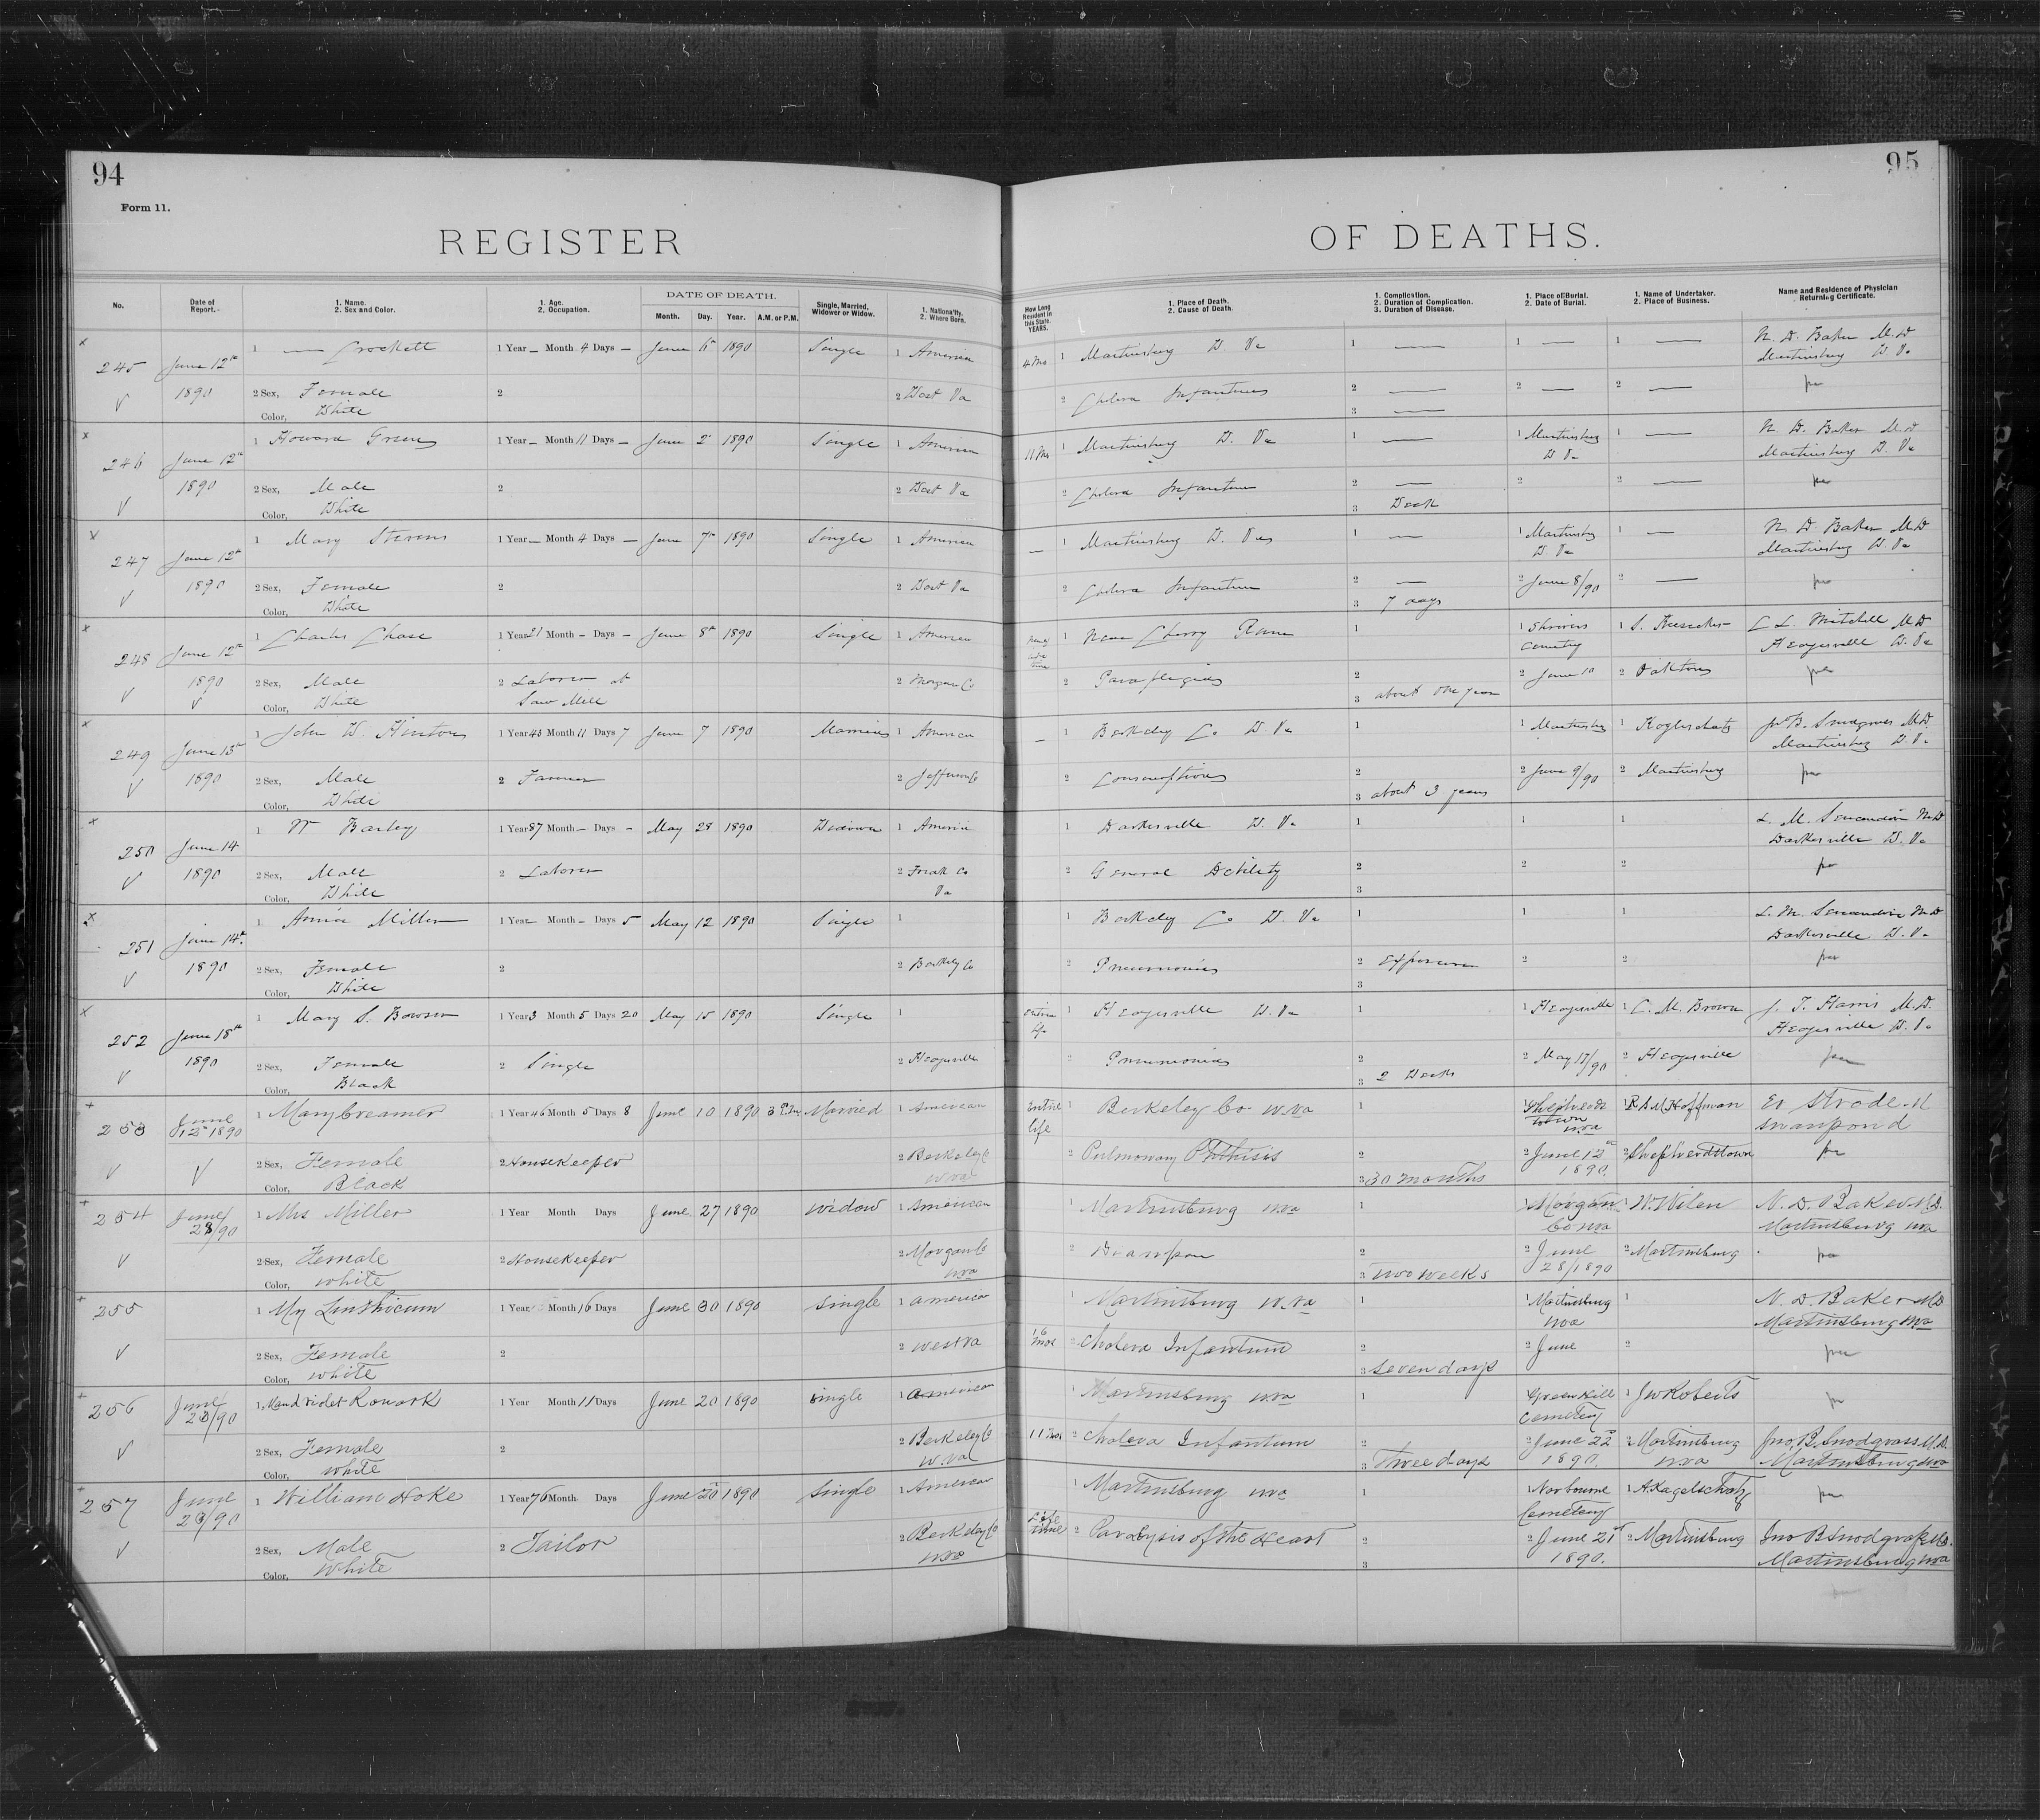 94
95
Form 11.
REGISTER OF DEATHS.
No.
Date of Report.
1. Name. 2. Sex and Color.
1. Age. 2. Occupation.
DATE OF DEATH.
Month. Day. Year. A.M. or P.M.
Single, Married, Widower or Widow.
1. Nationality. 2. Where Born.
How Long Resident in this State. YEARS.
1. Place of Death. 2. Cause of Death.
1. Complication. 2. Duration of Complication. 3. Duration of Disease.
1. Place of Burial. 2. Date of Burial.
1. Name of Undertaker. 2. Place of Business.
Name and Residence of Physician Returning Certificate.
x 245 June 12th 1 — Crockett 1 Year — Month 4 Days — June 6th 1890 Single 1 American 4 Mo 1 Martinsburg W. Va 1 — 1 — 1 — N. D. Baker M.D Martinsburg W Va
V 1890 2 Sex, Female Color, White 2 2 West Va 2 Cholera Infantum 2 — 3 — 2 — 2 —
x 246 June 12th 1 Howard Green 1 Year — Month 11 Days — June 2 1890 Single 1 American 11 Mo 1 Martinsburg W. Va 1 — 1 Martinsburg W Va 1 — N D. Baker M.D Martinsburg W. Va
V 1890 2 Sex, Male Color, White 2 2 West Va 2 Cholera Infantum 2 — 3 Week 2 2 —
x 247 June 12th 1 Mary Stevens 1 Year — Month 4 Days — June 7th 1890 Single 1 American — 1 Martinsburg W. Va 1 — 1 Martinsburg W Va 1 — N. D. Baker M.D Martinsburg W. Va
V 1890 2 Sex, Female Color, White 2 2 West Va 2 Cholera Infantum 2 — 3 7 days 2 June 8/90 2 —
x 248 June 12th 1 Charles Chase 1 Year 21 Month - Days - June 8th 1890 Single 1 American 1 Near Cherry Run 1 1 Shrivers Cemetry 1 S. L L. Mitchell M.D Hedgesville W. Va
V 1890 V 2 Sex, Male Color, White 2 Laborer at Saw Mill 2 Morgan Co 2 Paraplegia 2 3 about one year 2 June 10 2
x 249 June 13th 1 John W. Hinton 1 Year 43 Month 11 Days 7 June 7 1890 Married 1 American — 1 Berkeley Co W Va 1 1 Martinsburg 1 Jno B. Snodgrass M.D. Martinsburg W. Va
V 1890 2 Sex, Male Color, White 2 Farmer 2 Jefferson Co 2 Consumption 2 3 about 3 years 2 June 9/90 2 Martinsburg
x 250 June 14 1 Wm Barley 1 Year 87 Month - Days - May 28 1890 Widower 1 America 1 Darkesville W. Va 1 1 1 M.D Darkesville W. Va
V 1890 2 Sex, Male Color, White 2 Laborer 2 Fredk Co Va 2 General Debility 2 3 2 2
x 251 June 14th 1 Annie Miller 1 Year - Month - Days 5 May 12 1890 Single 1 1 Berkeley Co W. Va 1 1 1 M.D Darkesville W. Va
V 1890 2 Sex, Female Color, White 2 2 Berkeley Co 2 Pneumonia 2 Exposure 3 2 2
x 252 June 18th 1 Mary S. Bowser 1 Year 3 Month 5 Days 20 May 15 1890 Single 1 Entire life 1 Hedgesville W. Va 1 1 Hedgesville 1 C. M. Brown J. T. Harris M.D. Hedgesville W. Va
V 1890 2 Sex, Female Color, Black 2 Single 2 Hedgesville 2 Pneumonia 2 3 2 Weeks 2 May 17/90 2 Hedgesville
+ 253 June 12 1890 1 Mary Creamer 1 Year 46 Month 5 Days 8 June 10 1890 3 P.M. Married 1 American Entire life 1 Berkeley Co. W.Va 1 1 Shepherdstown W.va 1 R A M Hoffman
V V 2 Sex, Female Color, Black 2 Housekeeper 2 Berkeley Co W.va 2 Pulmonary Phthisis 2 3 30 months 2 June 12th 1890. 2 Shepherdstown
+ 254 June 28/90 1 Mrs Miller 1 Year Month Days June 27 1890 widow 1 American 1 Martinsburg W.va 1 1 Morgan Co W.va 1 W. Wilen N. D. Baker M.D. Martinsburg W.va
V 2 Sex, Female Color, white 2 Housekeeper 2 Morgan Co W.va 2 2 3 Two weeks 2 June 28/1890 2 Martinsburg
+ 255 1 My Linthicum 1 Year Month 16 Days June 30 1890 single 1 american 1 Martinsburg W.va 1 1 Martinsburg W.va 1 N. D. Baker M.D Martinsburg W.va
V 2 Sex, Female Color, white 2 2 west va 16 mos 2 Cholera Infantum 2 3 seven days 2 June 2
+ 256 June 23/90 1 Maud Violet Rowark 1 Year Month 11 Days June 20 1890 single 1 american 1 Martinsburg W.va 1 Green Hill Cemetery 1 J W Roberts
V 2 Sex, Female Color, white 2 2 Berkeley Co W.va 11 mos 2 Cholera Infantum 2 3 Three days 2 June 22 1890. 2 Martinsburg W.va Jno. B. Snodgrass M.D. Martinsburg W.va
+ 257 June 23/90 1 William Hoke 1 Year 76 Month Days June 20 1890 single 1 American 1 Martinsburg W.va 1 1 Norbourne Cemetery 1 A. Kagelschatz
V 2 Sex, Male Color, White 2 Tailor 2 Berkeley Co W.va Life time 2 Paralysis of the Heart 2 3 2 June 21st 1890. 2 Martinsburg Jno B Snodgrass M.D. Martinsburg W.va